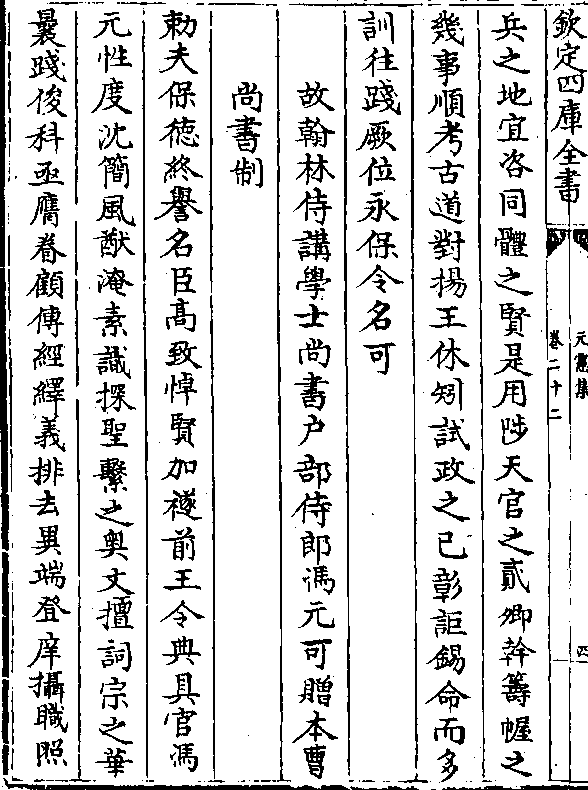 欽定四庫全書
元憲集
卷二十二
四
兵之地宜咨同體之賢是用陟天官之貳卿幹籌幄之
幾事順考古道對揚王休矧試政之已彰詎錫命而多
訓往踐厥位永保令名可
故翰林侍講學士尚書户部侍郎馮元可贈本曹
尚書制
勅夫保徳終譽名臣髙致悼賢加禭前王令典具官馮
元性度沈簡風猷淹素識探聖繫之奥文擅詞宗之華
曩踐俊科亟膺眷顧傳經繹義排去異端登庠攝職照